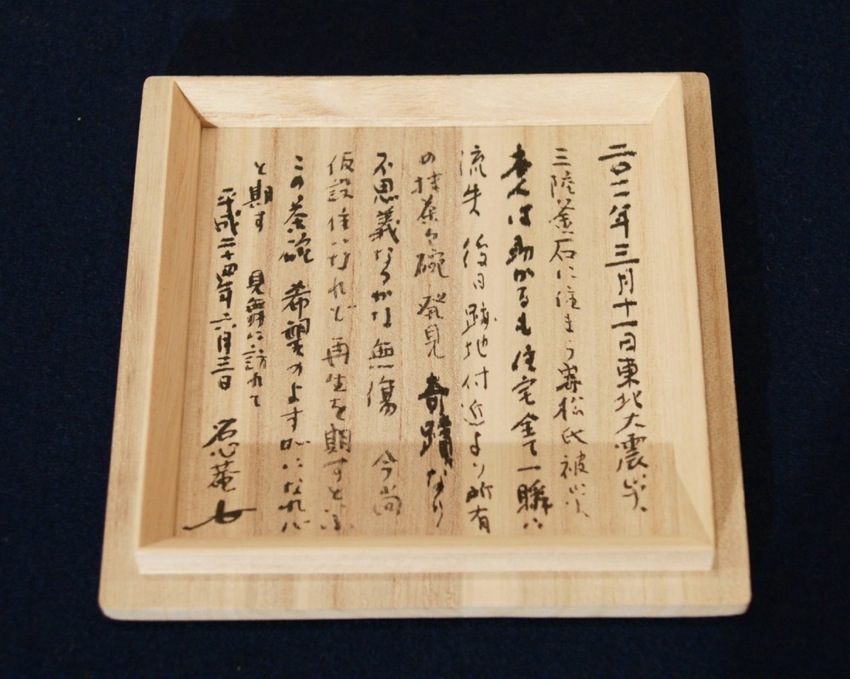 二〇一一年三月十一日東北大震災
三陸釜石に住まう松氏被災
本人は助かるも住宅全て一瞬に
流失 後日跡地付近より所有
の抹茶々碗 発見 奇蹟なり
不思議なるかな無傷 今尚
仮設住いなれど再生を期すと
この茶碗 希望のよすがになれば
と期す 見舞に訪れて
平成二十四年六月三日 石心菴